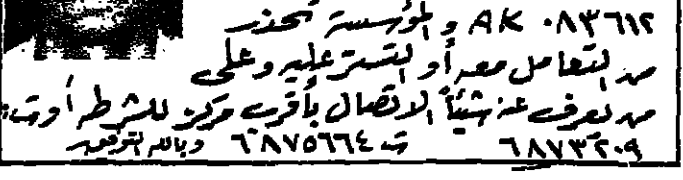 AK ٠٨٣٦١٢ و المؤسسة تحذر
من التعامل معه أو التستر عليه وعلى
من يعرف عنه شيئاً الاتصال بأقرب مركز للشرطه أو ت:
٦٨٧٣٢٠٩ ت ٦٨٧٥٦٦٤ وبالله التوفيق